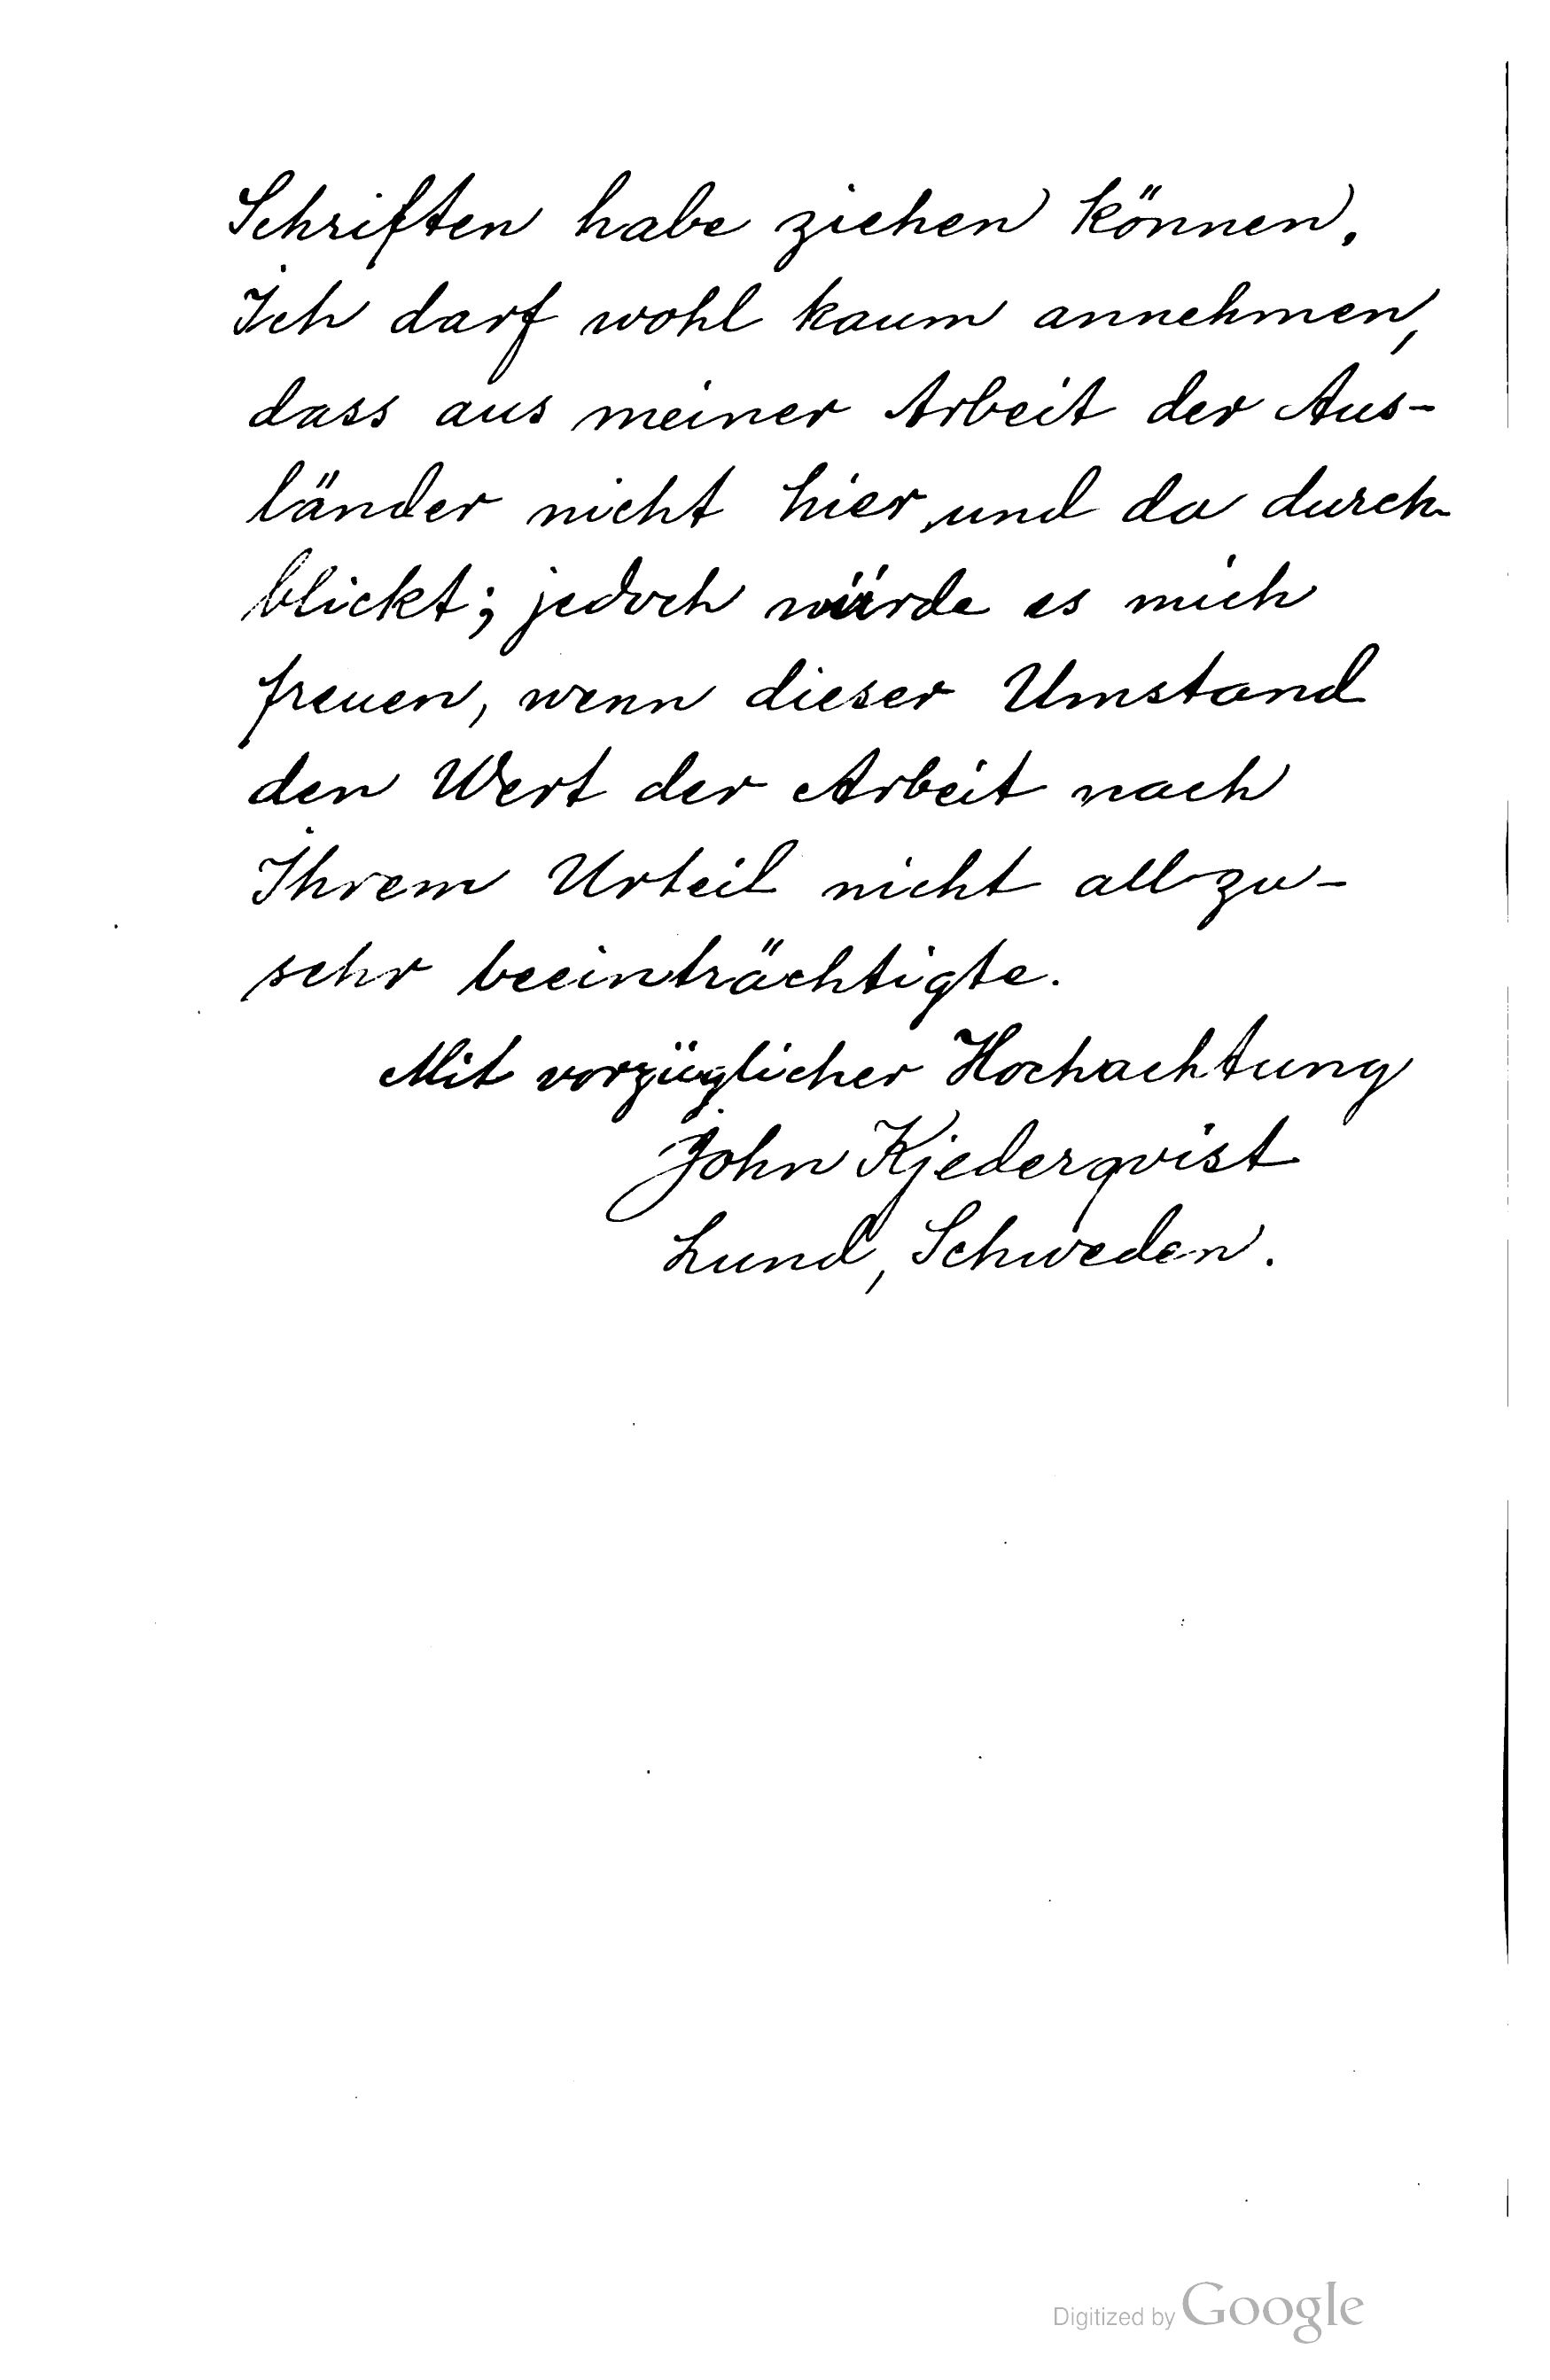 Schriften habe ziehen können.
Ich darf wohl kaum annehmen,
dass aus meiner Arbeit der Aus-
länder nicht hier und da durch-
blickt; jedoch würde es mich
freuen, wenn dieser Umstand
den Wert der Arbeit nach
Ihrem Urteil nicht allzu-
sehr beeinträchtigte.
Mit vorzüglicher Hochachtung
John Kjederqvist
Lund, Schweden.
Digitized by Google